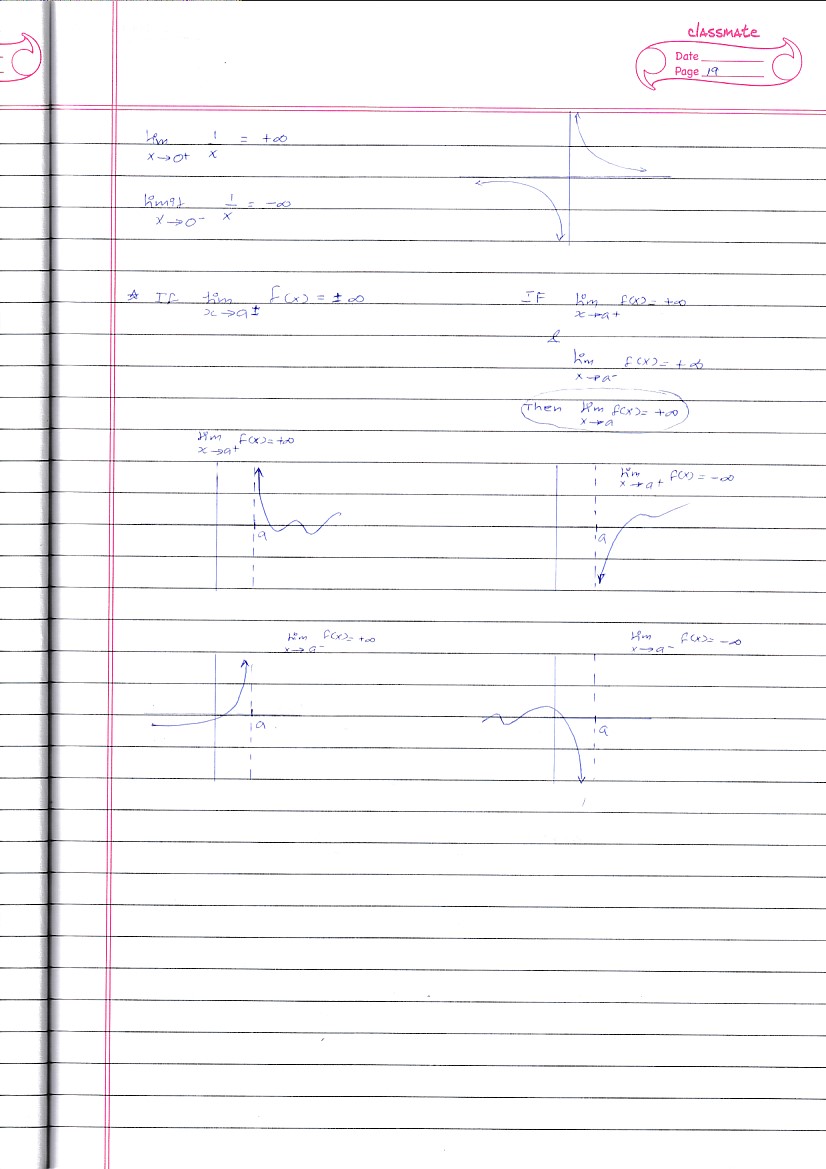 classmate
Date
Page 19
lim x→0+ 1/x = +∞
x→0- 1/x = -∞
☆ If lim x→a± f(x) = ±∞
IF lim x→a+ f(x) = +∞
&
lim x→a- f(x) = +∞
Then lim x→a f(x) = +∞
lim x→a+ f(x) = +∞
a
lim x→a+ f(x) = -∞
a
lim x→a- f(x) = +∞
a
lim x→a- f(x) = -∞
a